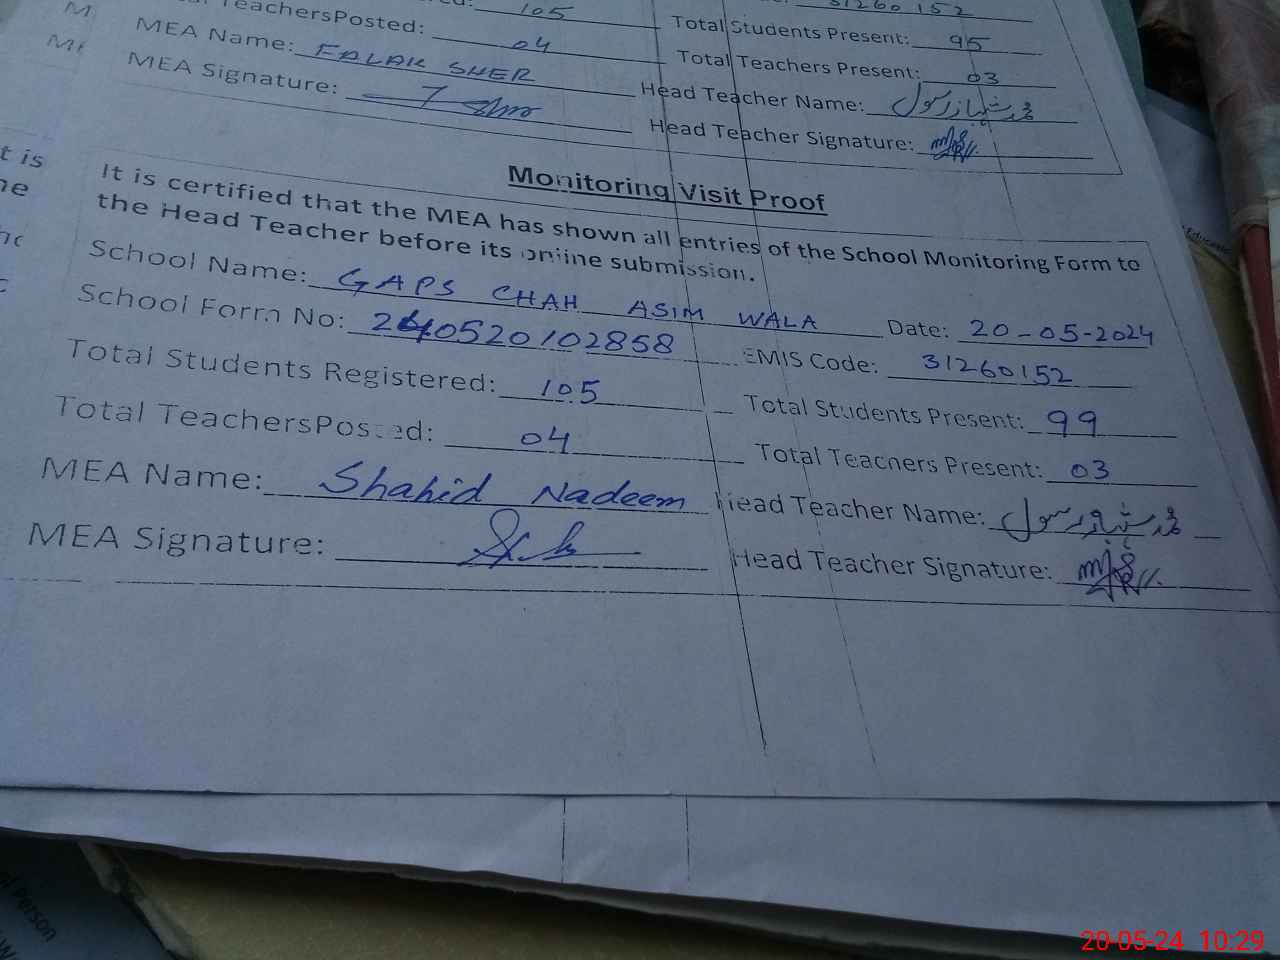 105
TeachersPosted: 04
31260152
Total Students Present: 95
MEA Name: FALAK SHER
Total Teachers Present: 03
MEA Signature:
Head Teacher Name:
Head Teacher Signature:
Monitoring Visit Proof
It is certified that the MEA has shown all entries of the School Monitoring Form to
the Head Teacher before its online submission.
School Name: GAPS CHAH ASIM WALA Date: 20-05-2024
School Form No: 240520102858 EMIS Code: 31260152
Total Students Registered: 105 Total Students Present: 99
Total TeachersPosted: 04 Total Teachers Present: 03
MEA Name: Shahid Nadeem Head Teacher Name:
MEA Signature: Head Teacher Signature:
t is
Person
20-05-24 10:29